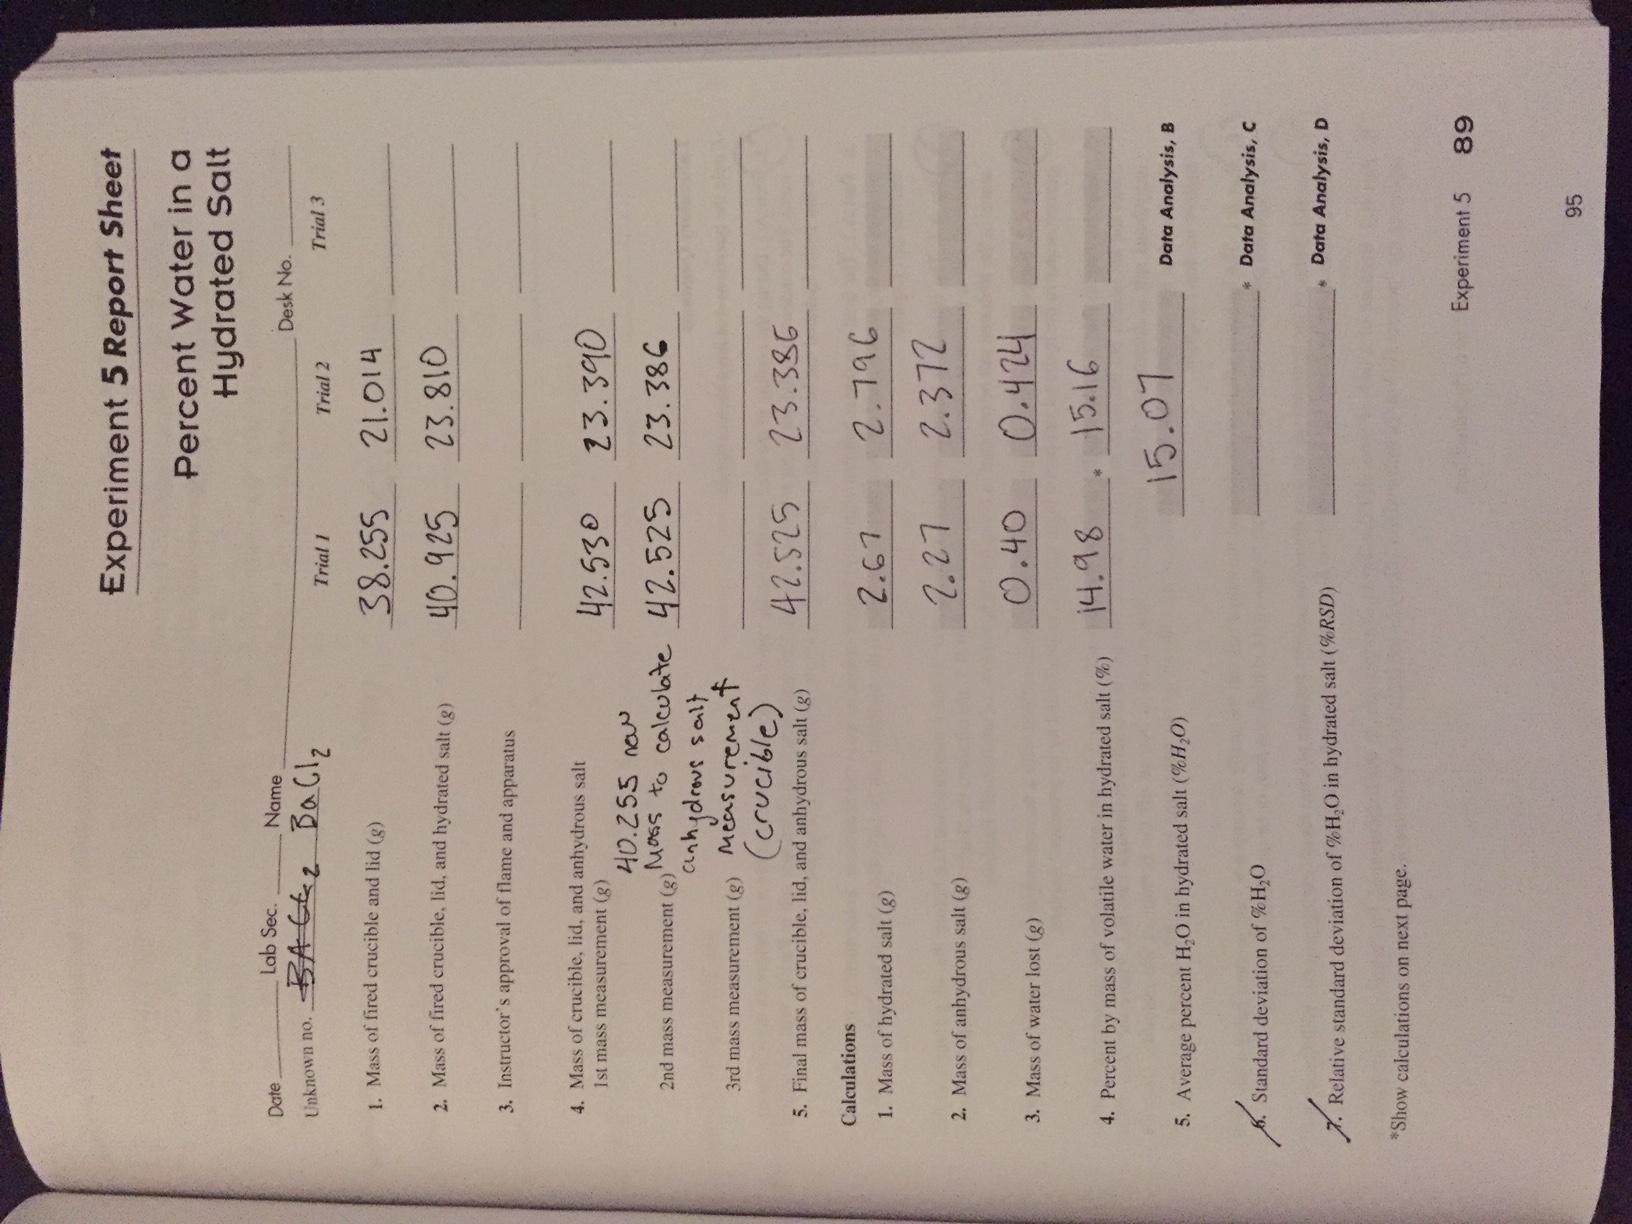 Experiment 5 Report Sheet
Percent Water in a
Hydrated Salt
Date Lab Sec. Name Desk No.
Unknown no. BaCl2
Trial 1 Trial 2 Trial 3
1. Mass of fired crucible and lid (g) 38.255 21.014
2. Mass of fired crucible, lid, and hydrated salt (g) 40.925 23.810
3. Instructor's approval of flame and apparatus
4. Mass of crucible, lid, and anhydrous salt
1st mass measurement (g) 42.530 23.390
40.255 new
2nd mass measurement (g) Mass to calculate 42.525 23.386
anhydrous salt
3rd mass measurement (g) measurement ↑
(crucible)
5. Final mass of crucible, lid, and anhydrous salt (g) 42.525 23.386
Calculations
1. Mass of hydrated salt (g) 2.67 2.796
2. Mass of anhydrous salt (g) 2.27 2.372
3. Mass of water lost (g) 0.40 0.424
4. Percent by mass of volatile water in hydrated salt (%) 14.98 * 15.16
5. Average percent H2O in hydrated salt (%H2O) 15.07 Data Analysis, B
6. Standard deviation of %H2O * Data Analysis, C
7. Relative standard deviation of %H2O in hydrated salt (%RSD) * Data Analysis, D
*Show calculations on next page.
Experiment 5 89
95